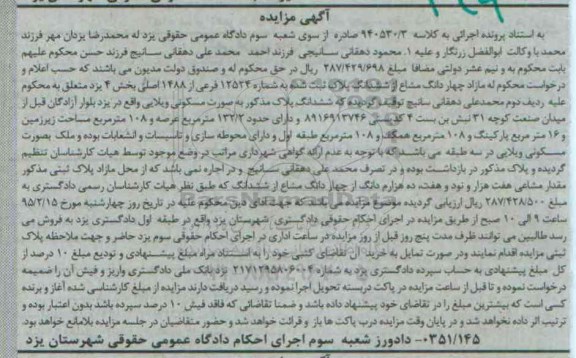 آگهی مزایده
به استناد پرونده اجرائی به کلاسه ۹۴۰۵۳۰/۳ صادره از سوی شعبه سوم دادگاه عمومی حقوقی یزد له محمدرضا یزدان مهر فرزند
محمد با وکالت ابوالفضل زرنگار و علیه ۱. محمود دهقانی سانیجی فرزند احمد محمد علی دهقانی سانیج فرزند حسن محکوم علیهم
بابت محکوم به و نیم عشر دولتی مضافا مبلغ ۲۸۷/۴۲۹/۶۹۸ ریال در حق محکوم له و صندوق دولت مدیون می باشند که حسب اعلام و
درخواست محکوم له مازاد چهار دانگ مشاع از ششدانگ پلاک ثبت شده به شماره ۱۲۵۲۴ فرعی از ۱۴۸۸ اصلی بخش ۴ یزد متعلق به محکوم
علیه ردیف دوم محمدعلی دهقانی سانیج توقیف گردیده که ششدانگ پلاک مذکور به صورت مسکونی ویلایی واقع در یزد بلوار آزادگان قبل از
میدان صنعت کوچه ۳۱ نبش بن بست ۴ کدپستی ۸۹۱۶۹۱۳۷۴۶ و دارای حدود ۱۳۲/۲ مترمربع عرصه و ۱۰۸ مترمربع مساحت زیرزمین
و ۱۶ متر مربع پارکینگ و ۱۰۸ مترمربع همکف و ۱۰۸ مترمربع طبقه اول و دارای محوطه سازی و تاسیسات و انشعابات بوده و ملک بصورت
مسکونی ویلایی در سه طبقه می باشد که با توجه به عدم ارائه گواهی شهرداری مراتب در وضع موجود توسط هیات کارشناسان تنظیم
گردیده و پلاک مذکور در بازداشت بوده و در تصرف محمد علی دهقانی سانیج و در اجاره نمی باشد که از محل مازاد پلاک ثبتی مذکور
مقدار مشاعی هفت هزار و نود و هفت، ده هزارم دانگ از چهار دانگ مشاع از ششدانگ که طبق نظر هیات کارشناسان رسمی دادگستری به
مبلغ ۲۸۷/۴۲۸/۵۰۰ ریال ارزیابی گردیده موضوع مزایده می باشد که جهت ادای دین محکوم علیه در تاریخ روز چهارشنبه مورخ ۹۵/۲/۱۵
ساعت ۹ الی ۱۰ صبح از طریق مزایده در اجرای احکام حقوقی دادگستری شهرستان یزد واقع در طبقه اول دادگستری یزد به فروش می
رسد طالبین می توانند ظرف مدت پنج روز قبل از روز مزایده در ساعت اداری در اجرای احکام حقوقی سوم یزد حاضر و جهت ملاحظه پلاک
ثبتی مزایده اقدام نمایند ودر صورت تمایل به خرید آن تقاضای کتبی خود را به استناد مراه مبلغ پیشنهادی و تودیع مبلغ ۱۰ درصد از
کل مبلغ پیشنهادی به حساب سپرده دادگستری یزد به شماره ۲۱۷۱۲۹۵۸۰۶۰۲۴ نزد بانک ملی دادگستری واریز و فیش آن را ضمیمه
درخواست نموده و تا قبل از ساعت مزایده در پاکت دربسته تحویل اجرا نموده و رسید دریافت دارند مزایده از مبلغ کارشناسی شده آغاز و برنده
کسی است که بیشترین مبلغ را در تقاضای خود پیشنهاد داده باشد و ضمنا تقاضائی که فاقد فیش ۱۰ درصد سپرده باشد بدون اعتبار بوده و
ترتیب اثر داده نخواهد شد و در پایان وقت مزایده درب پاکت ها باز و قرائت خواهد شد و حضور متقاضیان در جلسه مزایده بلامانع خواهد بود.
۰۳۵۱/۱۴۵- دادورز شعبه سوم اجرای احکام دادگاه عمومی حقوقی شهرستان یزد